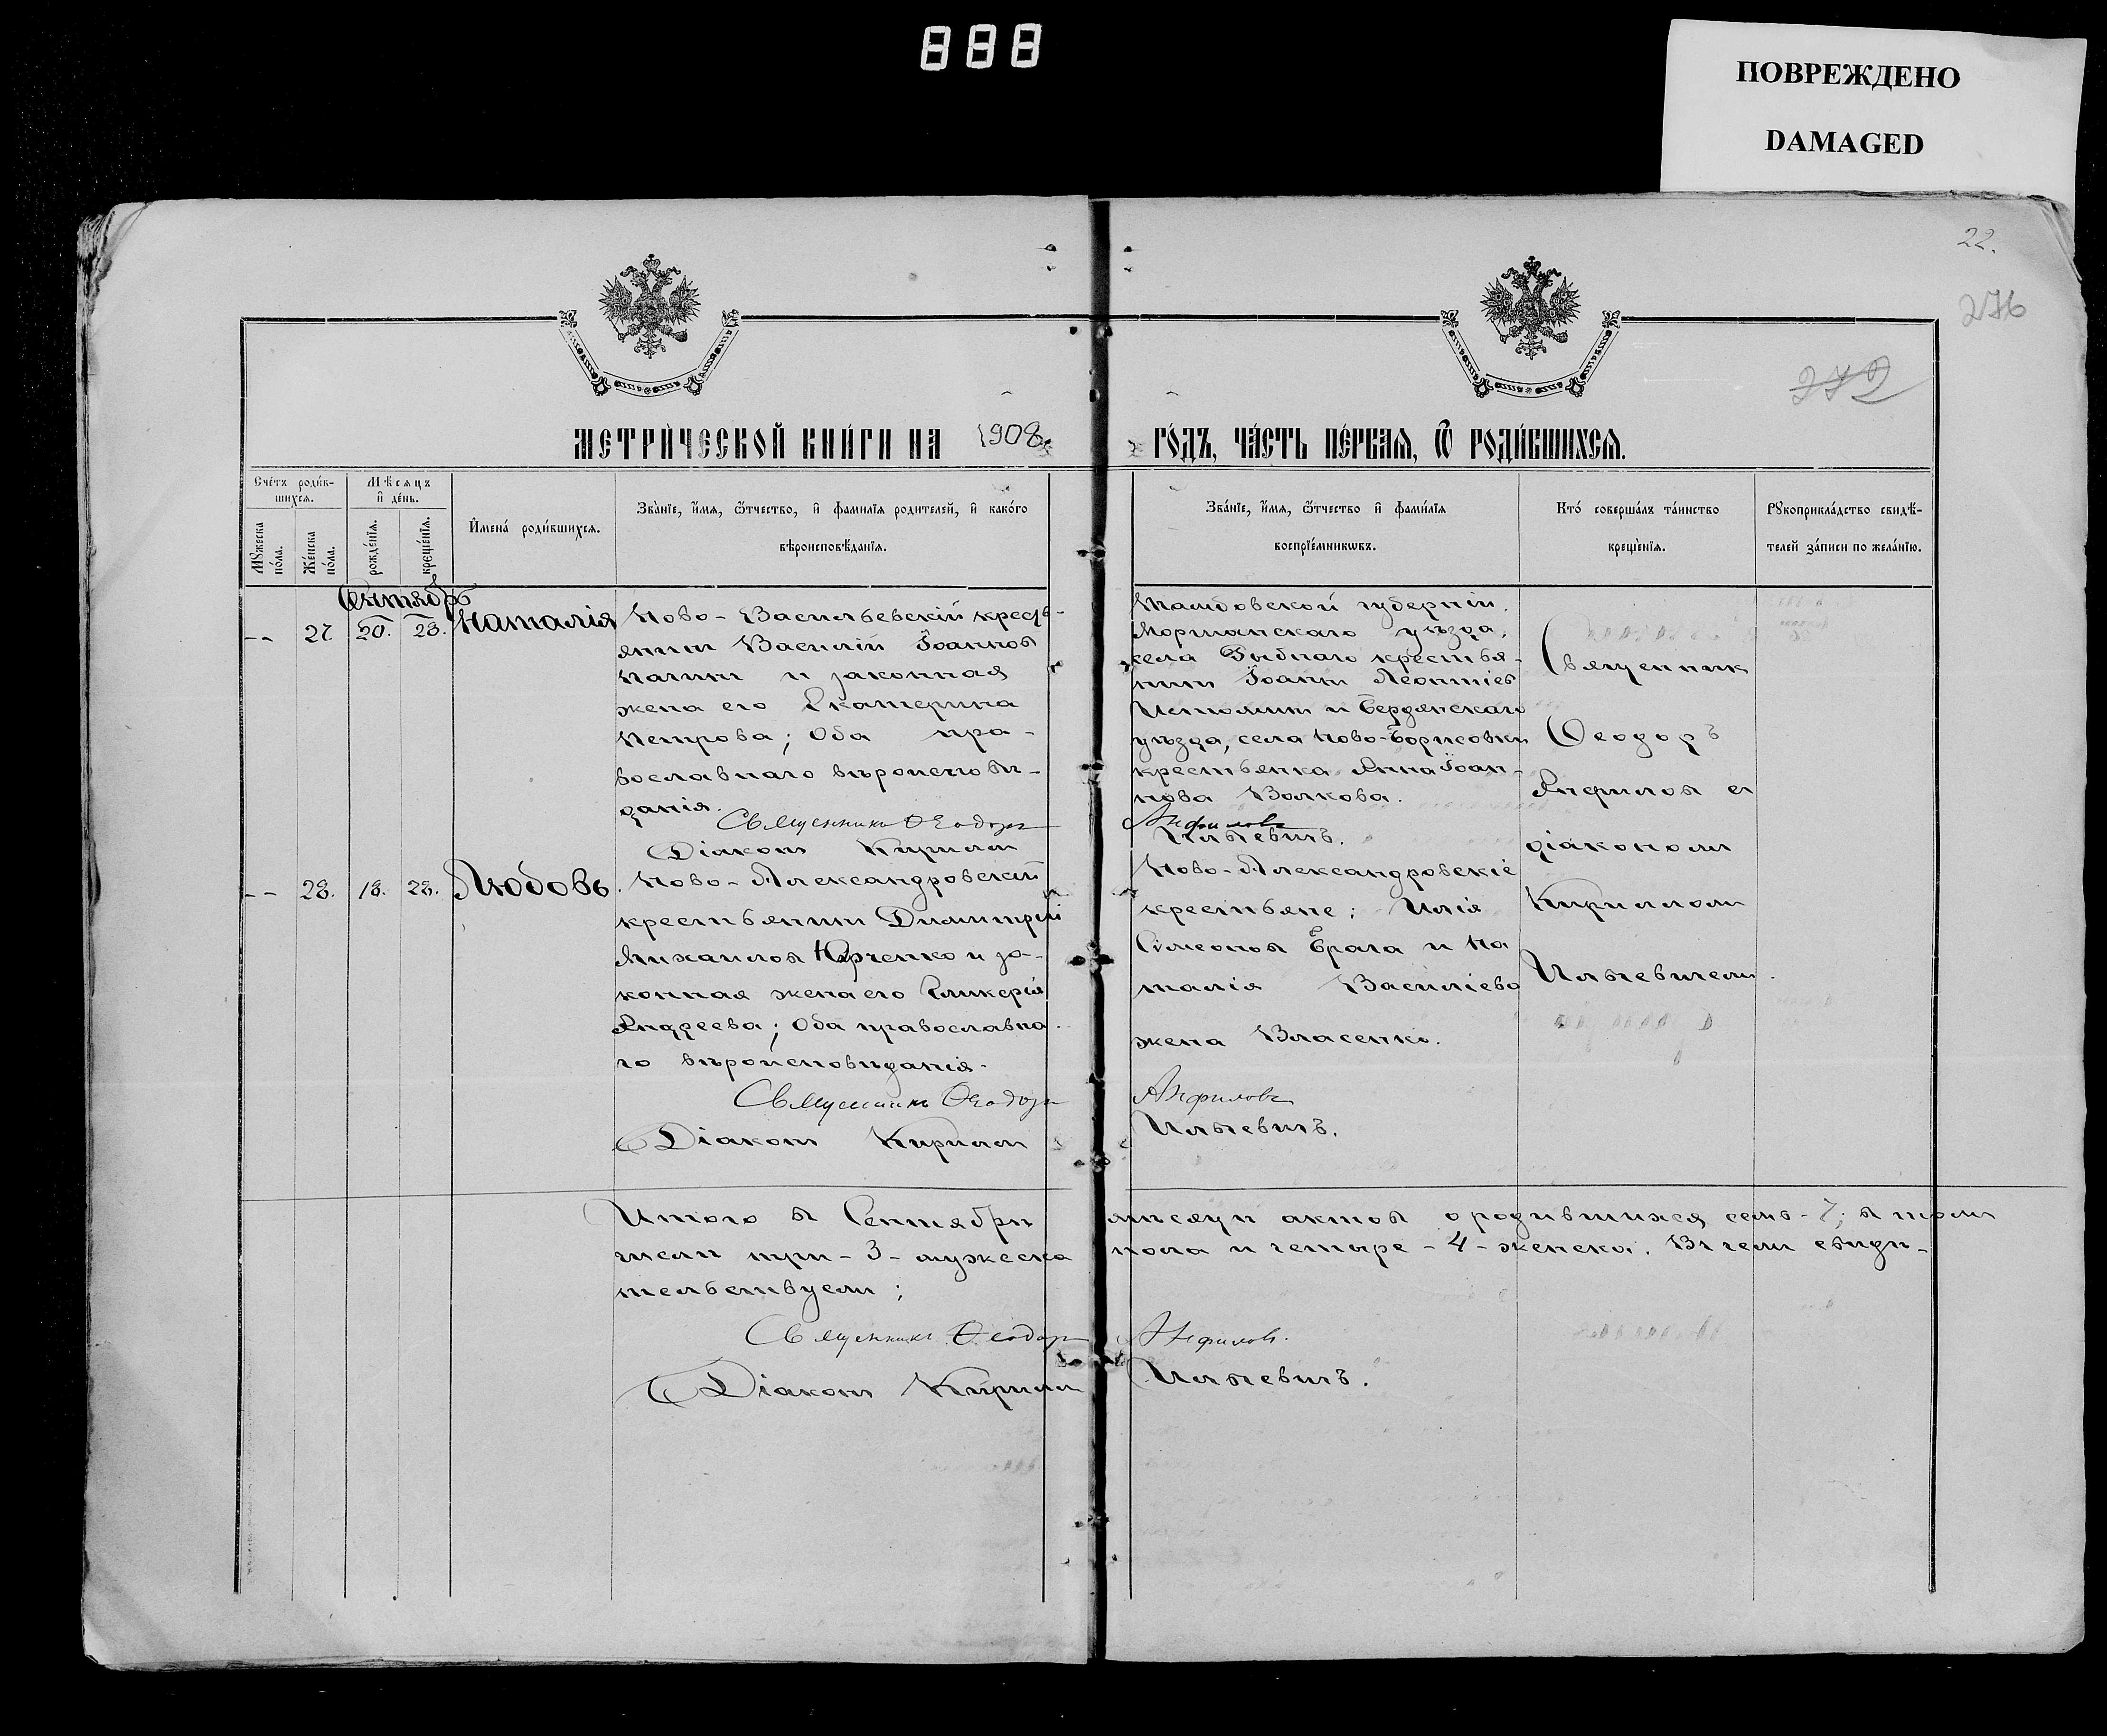 888
ПОВРЕЖДЕНО
DAMAGED
22.
276
272
МЕТРИ́ЧЕСКОЙ КНИ́ГИ НА 1908
ГО́ДЪ, ЧА́СТЬ ПЕ́РВАЯ, Ѿ РОДИ́ВШИХСЯ.
Сче́тъ роди́в-
шихся.
Мѣсяцъ
и҆ де́нь.
Мꙋ́жеска по́ла.
Же́нска по́ла.
рожде́нїя.
креще́нїя.
И҆мена̀ роди́вшихся.
Зва́нїе, и҆́мя, ѻ҆́тчество, и҆ фами́лїя родителей, и҆ како́го
вѣроисповѣ́данїя.
Зва́нїе, и҆́мя, ѻ҆́тчество и҆ фами́лїя
воспрїе́мникѡвъ.
Кто̀ соверша́лъ та́инство
креще́нїя.
Рꙋкоприкла́дство свидѣ́-
телей за́писи по жела́нїю.
Сентябрь
-- 27. 20. 23. Наталія
Ново-Васильевскій кресть-
янинъ Василій Іоанновъ
и законная
жена его Екатерина
Петрова; Оба пра-
вославнаго вѣроисповѣ-
данія.
Священникъ Ѳеодоръ Анфиловъ
Діаконъ Кириллъ Ильевичъ.
Тамбовской губерніи,
Моршанскаго уѣзда,
села Рыбнаго крестья-
нинъ Іоаннъ Леонтіевъ
Истоминъ и Бердянскаго
уѣзда, села Ново-Борисовки
крестьянка Анна Іоан-
нова Волкова.
Священникъ
Ѳеодоръ
Анфиловъ съ
діакономъ
Кирилломъ
Ильевичемъ.
-- 28. 18. 28. Любовь.
Ново-Александровскій
крестьянинъ Димитрій
Михаиловъ Юрченко и за-
конная жена его Гликерія
Андреева; Оба православна-
го вѣроисповѣданія.
Священникъ Ѳеодоръ Анфиловъ
Діаконъ Кириллъ Ильевичъ.
Ново-Александровскіе
крестьяне: Илія
Симеоновъ Брага и На
талія Василіева
жена Власенко.
Итого въ Сентябрѣ мѣсяцѣ актовъ о родившихся семь-7; въ томъ
числѣ три-3-мужеска пола и четыре-4-женска. Въ чемъ свидѣ-
тельствуемъ;
Священникъ Ѳеодоръ Анфиловъ.
Діаконъ Кириллъ Ильевичъ.